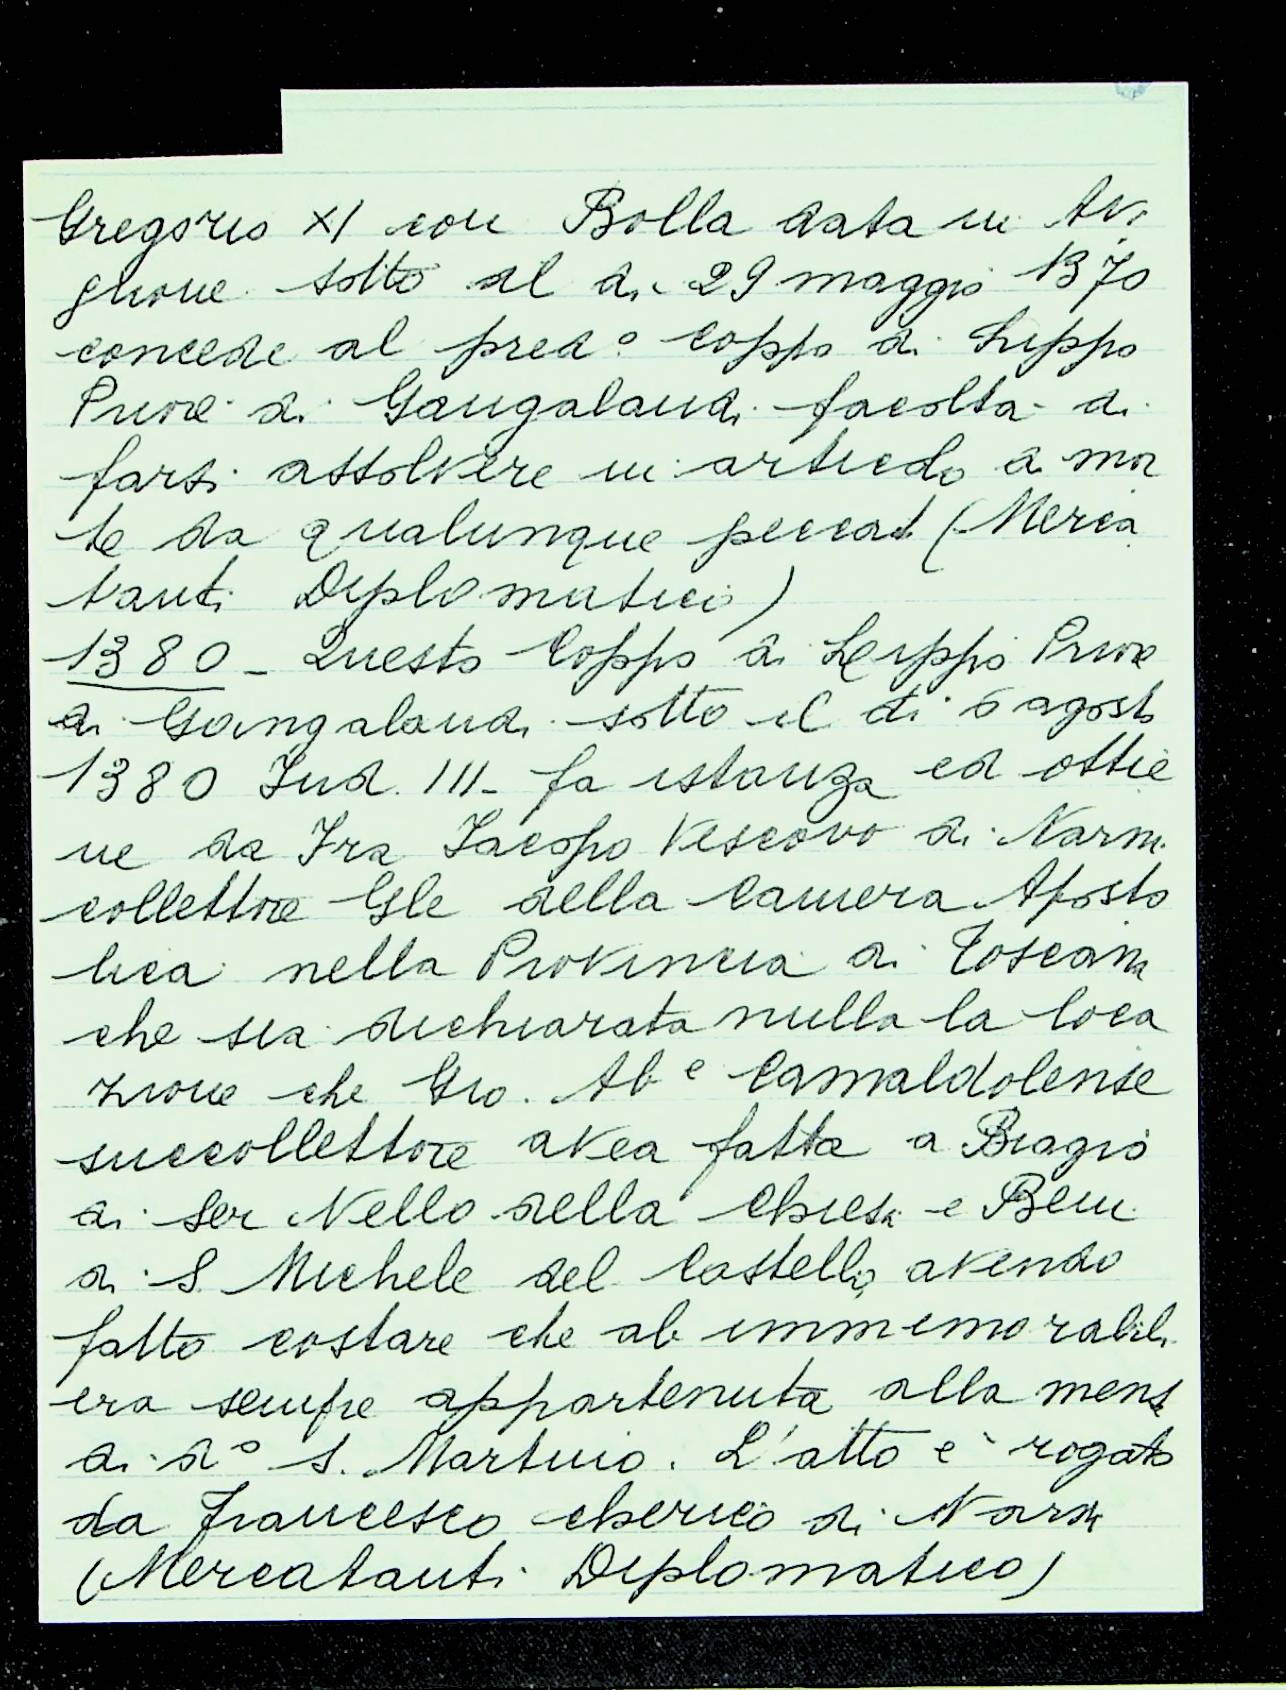 Gregorio XI con Bolla data in Avi
gnone sotto al di 29 maggio 1370
concede al pred.º Coppo di Lippo
Priore di Gangalandi facoltà di
farsi assolvere in articolo di mor
te da qualunque peccat. (Merca
tanti Diplomatico)
1380 - Questo Coppo di Lippo Priore
di Gangalandi sotto il di 6 agosto
1380 Ind. III - fa istanza ed ottie
ne da Fra Iacopo Vescovo di Narni
collettore Gle della Camera Aposto
lica nella Provincia di Toscana
che sia dichiarata nulla la loca
zione che Gio. Ab e Camaldolense
succollettore avea fatta a Biagio
di Ser Nello della Chiesa e Beni
di S. Michele del Castello, avendo
fatto costare che ab immemorabili
era sempre appartenuta alla mensa
di dº S. Martino. L'atto è rogato
da Francesco cherico di Narni
(Mercatanti Diplomatico)